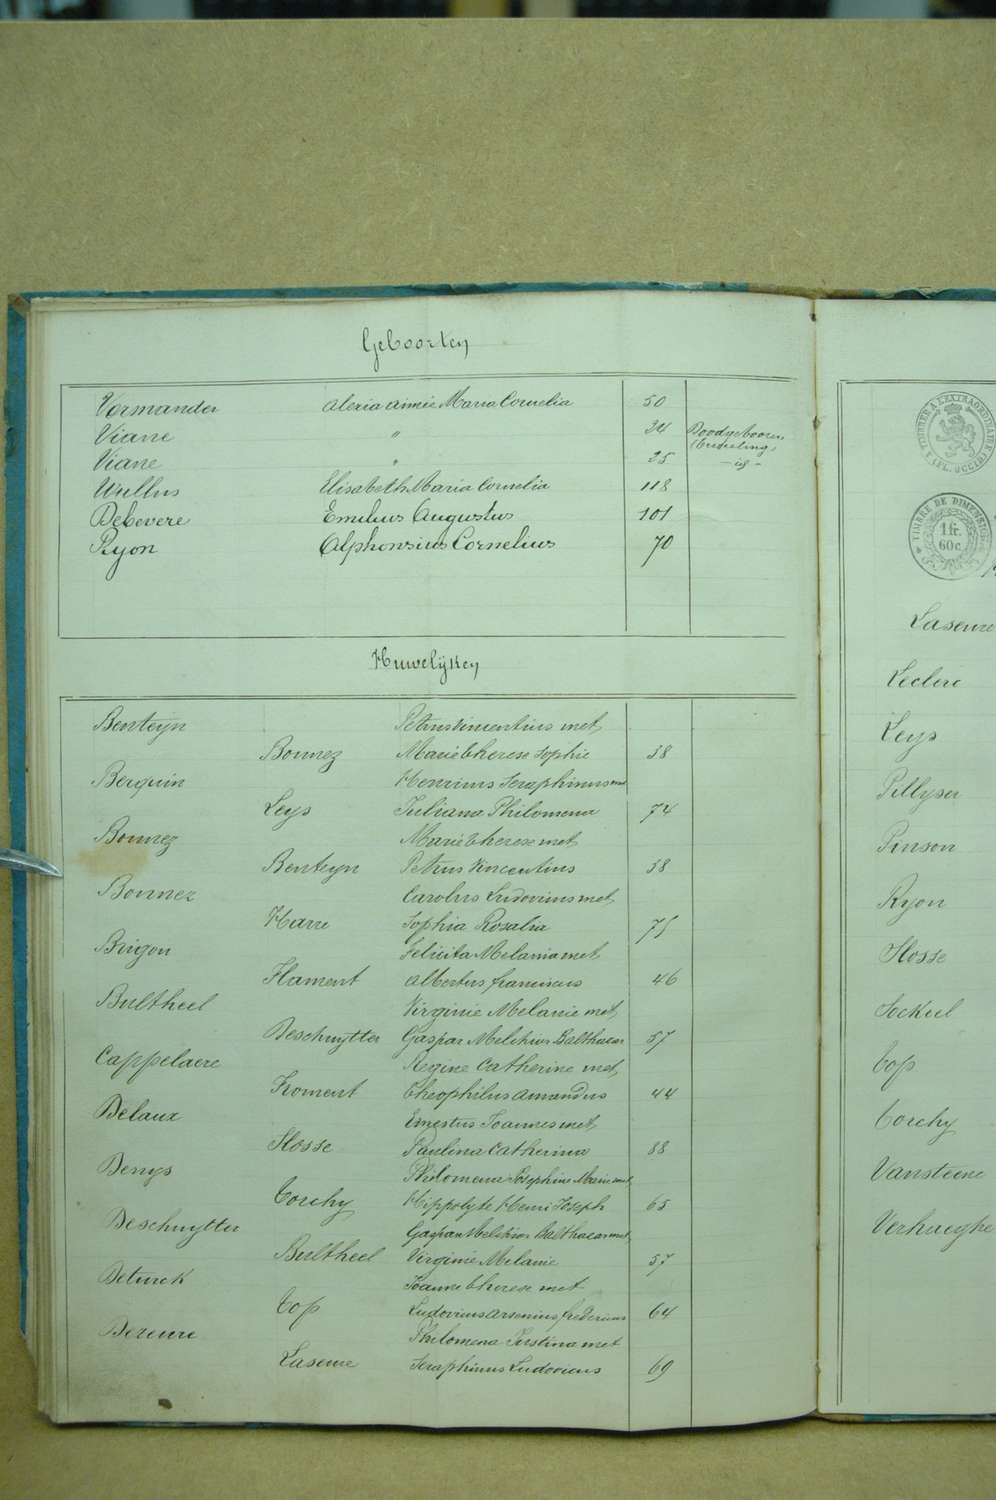 Geboorten
Vermander Alexia Aimée Maria Cornelia 50
Viane " 34 Doodgebooren
Viane " 35 tweeling
Wullus Elisabeth Maria Cornelia 118
Debevere Emilius Augustus 101
Ryon Alphonsius Cornelius 70
Huwelijken
Benteyn Petrus Vincentius met
Bonnez Marie Therese Sophie 38
Berquin Henricus Seraphinus met
Leys Juliana Philomena 74
Bonnez Marie Therese met
Benteyn Petrus Vincentius 38
Bonnez Carolus Ludovicus met
Harre Sophia Rosalia 75
Brigou Felicita Melania met
Flament Albertus Franciscus 46
Bultheel Virginie Melanie met
Deschuytter Gaspar Melchior Balthazar 57
Cappelaere Regine Catherine met
Froment Theophilus Amandus 44
Delaux Ernestus Joannes met
Slosse Paulina Catherina 88
Denys Philomena Josephine Marie met
Torchy Hippolyte Henri Joseph 65
Deschuytter Gaspar Melchior Balthazar met
Bultheel Virginie Melanie 57
Deturck Joanne Therese met
Top Ludovicus Arsenius 64
Dezeure Philomena Justina met
Laseure Seraphinus Ludovicus 69
TIMBRE DE DIMENSION
1 fr.
60 c.
Laseure
Leclerc
Leys
Pillyser
Pinson
Ryon
Slosse
Sockeel
Top
Torchy
Vansteene
Verhaeghe